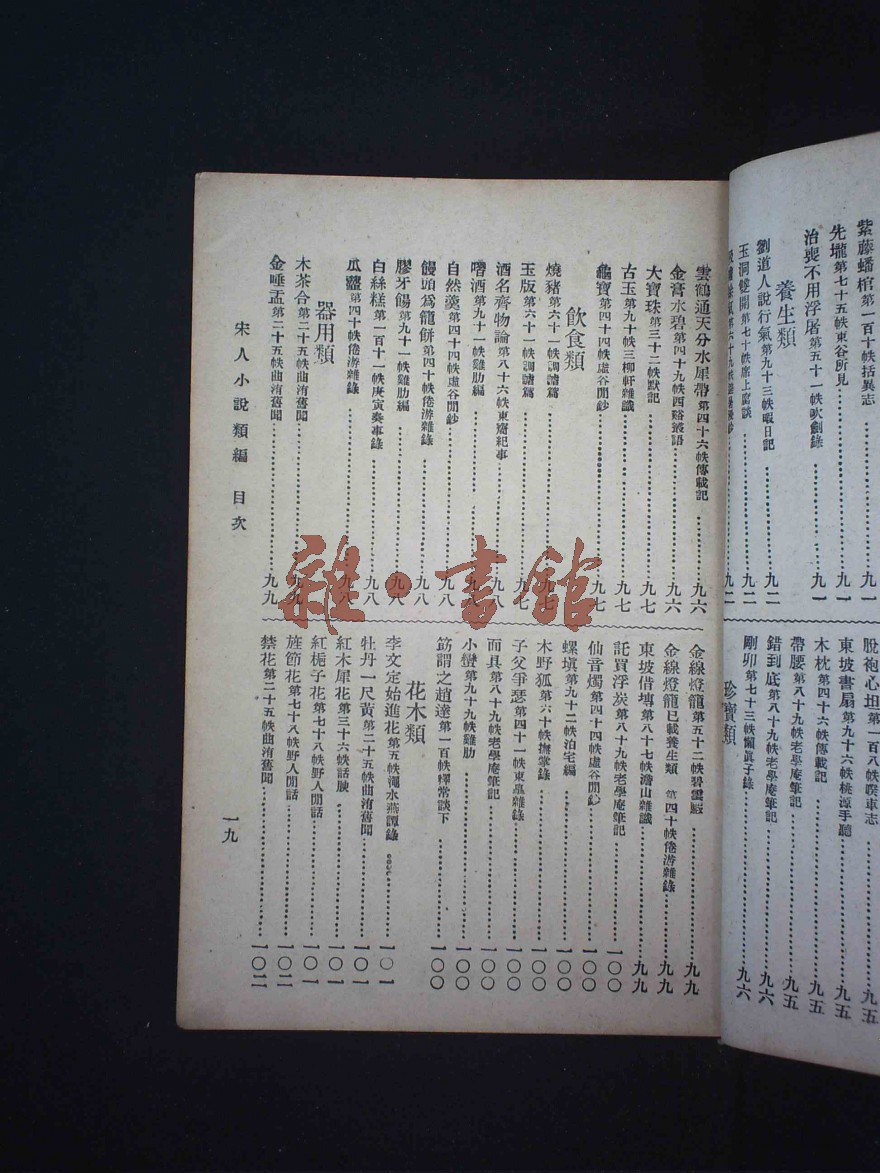 紫藤蟠棺第一百十帙括異志九一
先壠第七十五帙東谷所見九一
治喪不用浮屠第五十一帙吹劍錄九一
養生類
劉道人說行氣第九十三帙暇日記九二
玉洞雙開第七十帙席上腐談九二
九二
脫袍心坦第一百八帙睽車志九五
東坡書扇第九十六帙桃源手聽九五
木枕第四十六帙傳載記九五
帶腰第八十九帙老學庵筆記九五
錯到底第八十九帙老學庵筆記九六
剛卯第七十三帙嬾真子錄九六
珍寶類
雲鶴通天分水犀帶第四十六帙傳載記九六
金膏水碧第四十九帙西谿叢語九六
大寶珠第三十二帙默記九七
古玉第九十帙三柳軒雜識九七
龜寶第四十四帙虛谷閒鈔九七
飲食類
燒豬第六十一帙調謔篇九七
玉版第六十一帙調謔篇九七
酒名齊物論第八十六帙東齋紀事九八
嗜酒第九十一帙雞肋編九八
自然羹第四十四帙虛谷閒鈔九八
饅頭爲籠餅第四十帙倦游雜錄九八
膠牙餳第九十一帙雞肋編九八
白絲糕第一百十一帙庚寅奏事錄九八
瓜虀第四十帙倦游雜錄九八
器用類
木茶合第二十五帙曲洧舊聞九九
金唾盂第二十五帙曲洧舊聞九九
金線燈籠第五十二帙碧雲騢九九
金線燈籠已載養生類 第四十帙倦游雜錄九九
東坡借塼第八十七帙澹山雜識九九
託買浮炭第八十九帙老學庵筆記一〇〇
仙音燭第四十四帙虛谷閒鈔一〇〇
螺塡第九十二帙泊宅編一〇〇
木野狐第六十帙撫掌錄一〇〇
子父爭瑟第四十一帙東皐雜錄一〇〇
而具第八十九帙老學庵筆記一〇〇
小蠻第九十九帙雞肋一〇〇
笻謂之趙達第一百帙釋常談下一〇〇
花木類
李文定始進花第五帙澠水燕譚錄一〇一
牡丹一尺黃第二十五帙曲洧舊聞一〇一
紅木犀花第三十六帙話腴一〇一
紅梔子花第七十八帙野人閒話一〇一
旌節花第七十八帙野人閒話一〇二
禁花第二十五帙曲洧舊聞一〇二
宋人小說類編 目次
一九
雜·書館